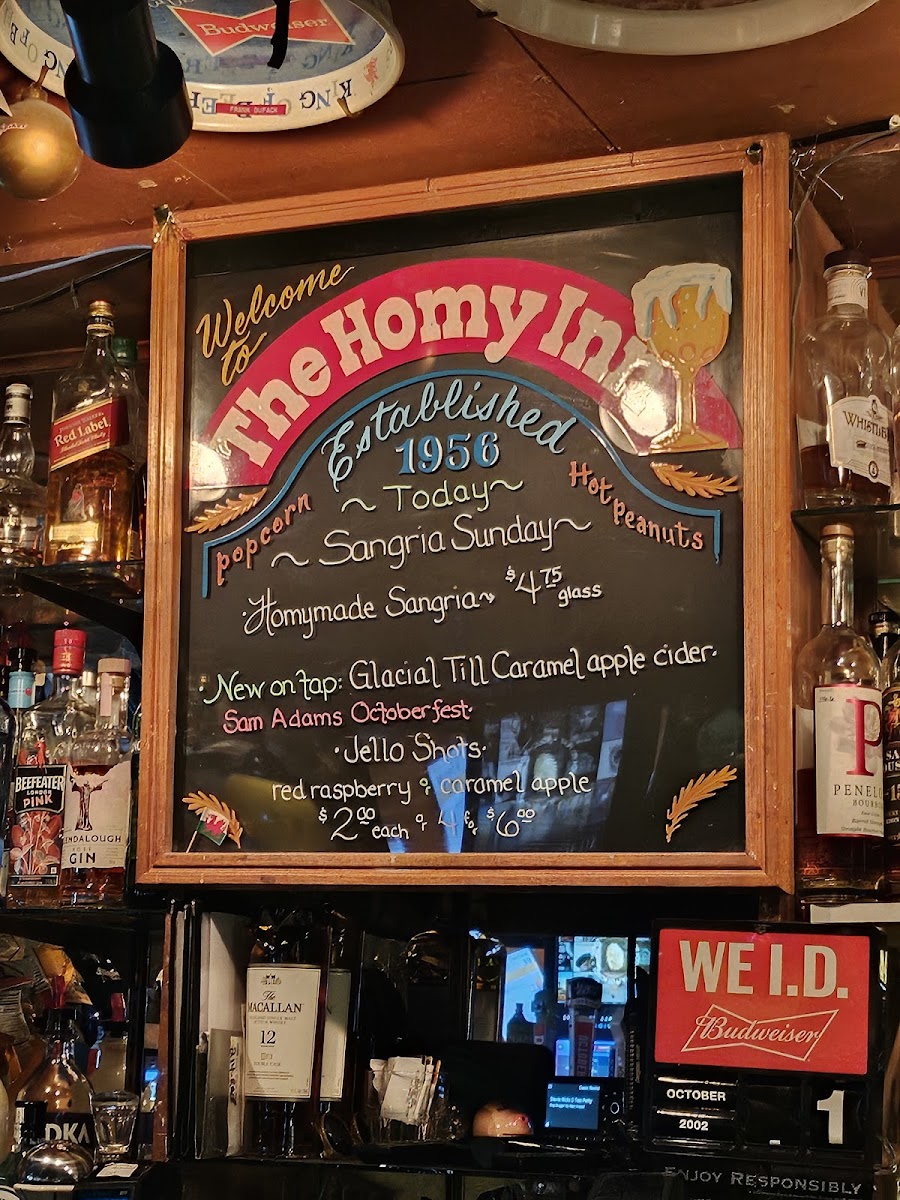 Budweiser
KING OF BEER
FRANK DUFACK
Welcome
to
The Homy Inn
Established
1956
popcorn
Hot peanuts
~ Today ~
~ Sangria Sunday ~
·Homymade Sangria~ $4.75 glass
·New on tap: Glacial Till Caramel apple cider·
Sam Adams Octoberfest·
·Jello Shots·
red raspberry or caramel apple
$2.00 each or 4 for $6.00
Red Label
BEEFEATER
LONDON
PINK
GIN
WHISTLE
P
PENELO
BOURBON
The
MACALLAN
12
DOUBLE CASK
DKA
WE I.D.
Budweiser
OCTOBER
2002
1
ENJOY RESPONSIBLY